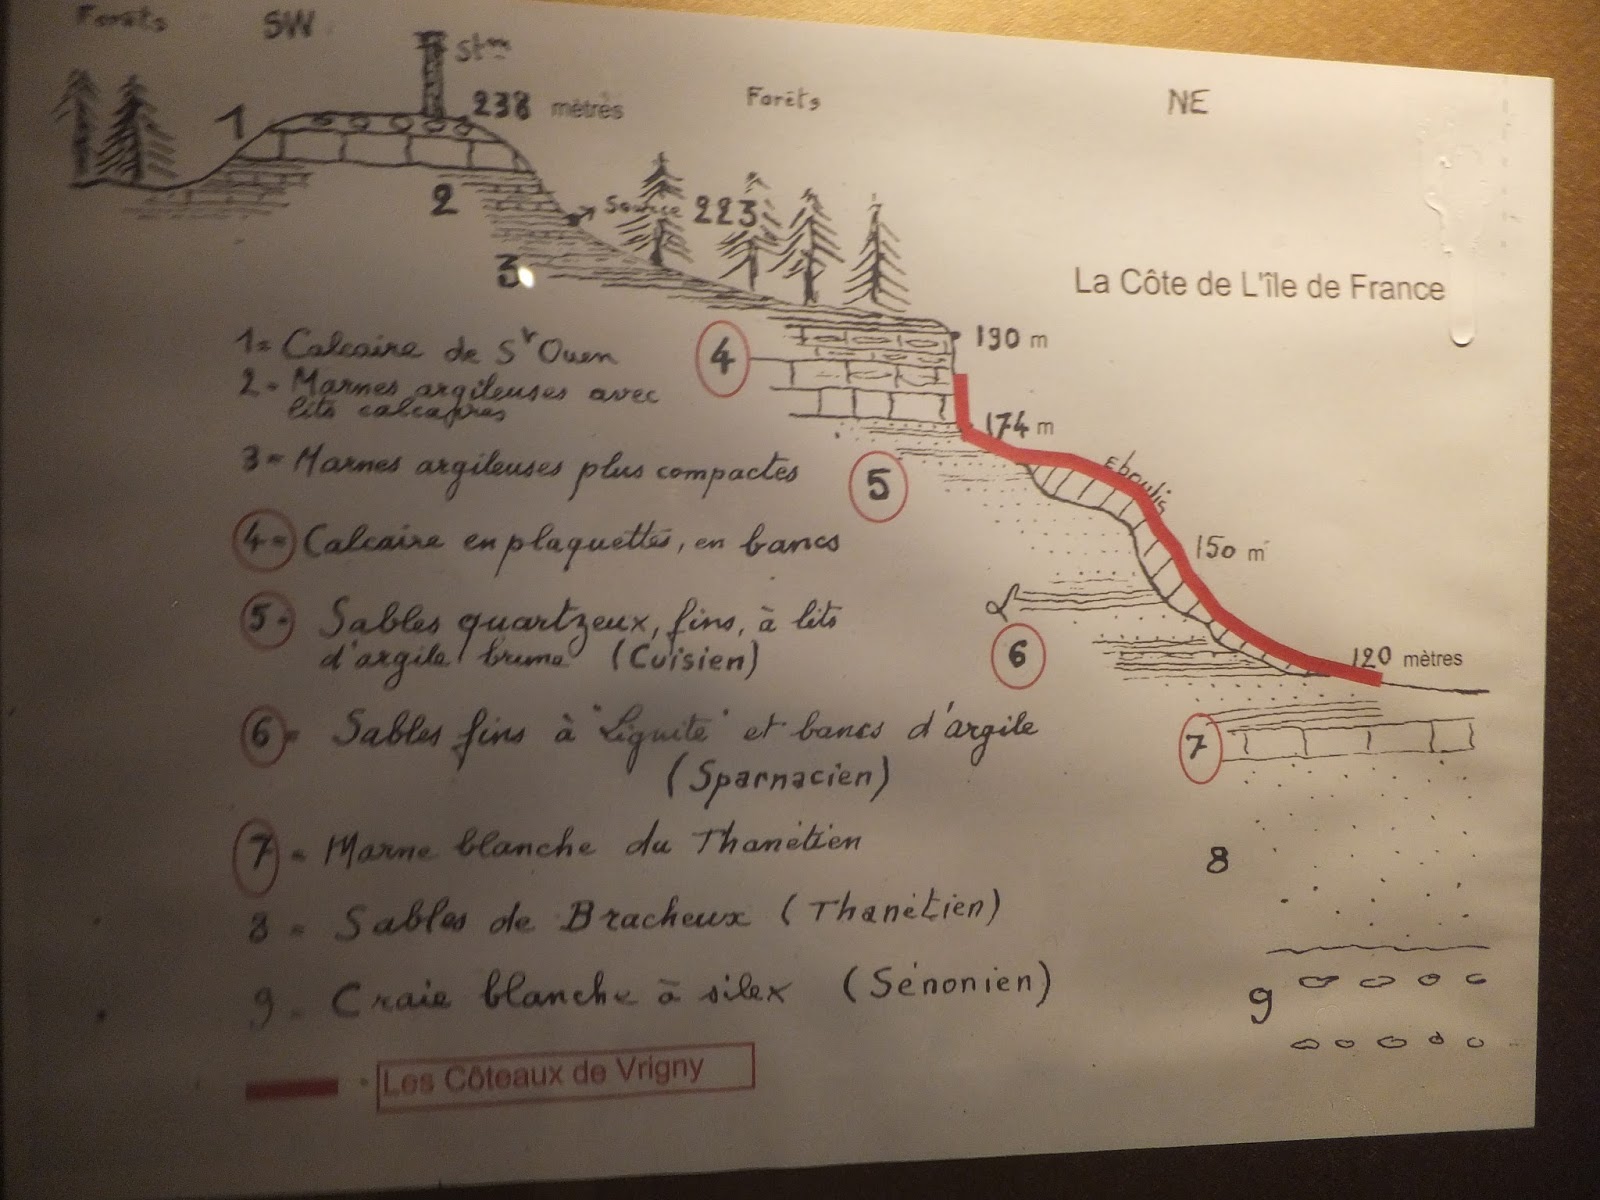 Forêts
SW
Stm
238 mètres
Forêts
NE
1
2
Source 223
3
La Côte de L'île de France
190 m
4
174 m
5
Eboulis
150 m
6
120 mètres
7
8
9
1 = Calcaire de St Ouen
2 = Marnes argileuses avec
lits calcaires
3 = Marnes argileuses plus compactes
4 = Calcaire en plaquettes, en bancs
5 = Sables quartzeux, fins, à lits
d'argile brune (Cuisien)
6 = Sables fins à "Lignite" et bancs d'argile
(Sparnacien)
7 = Marne blanche du Thanétien
8 = Sables de Bracheux (Thanétien)
9 = Craie blanche à silex (Sénonien)
Les Côteaux de Vrigny